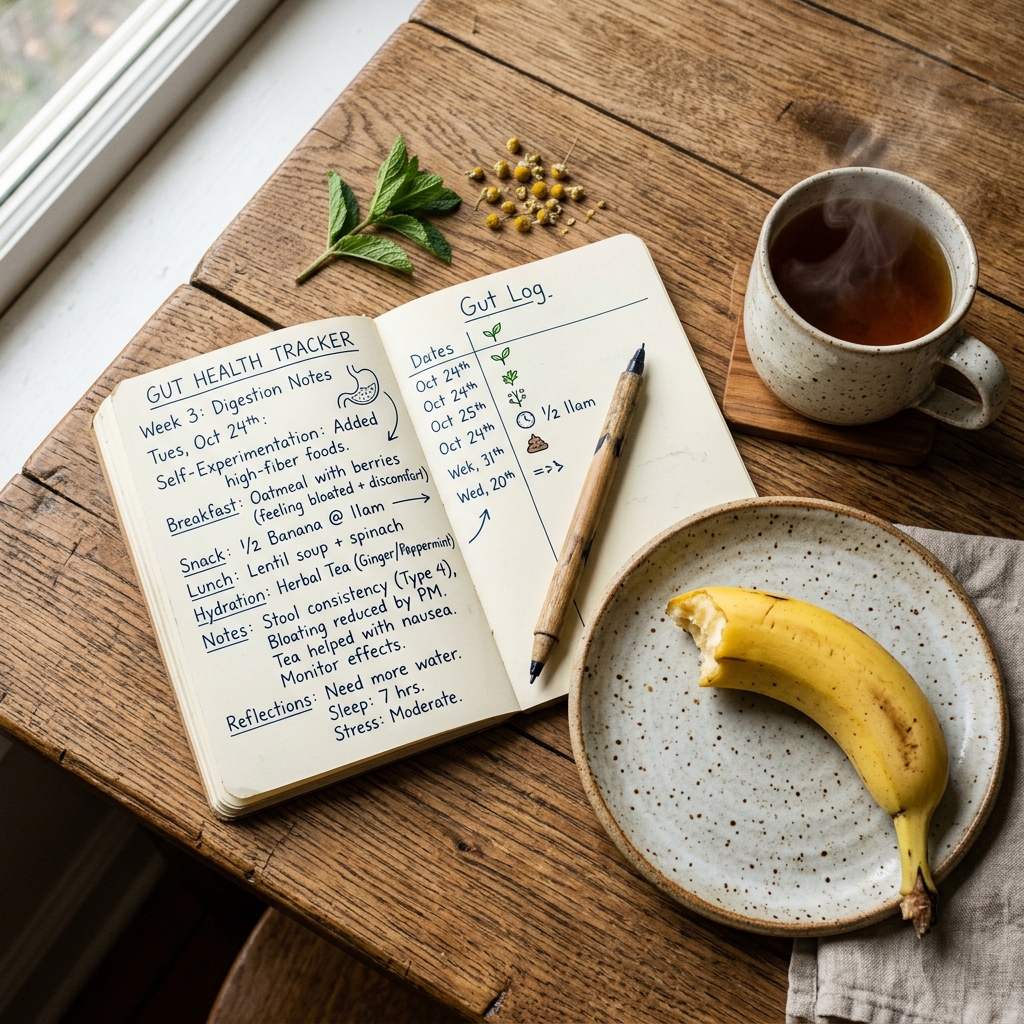 GUT HEALTH TRACKER
Week 3: Digestion Notes
Tues, Oct 24th:
Self-Experimentation: Added
high-fiber foods.
Breakfast: Oatmeal with berries
(feeling bloated + discomfort)
Snack: 1/2 Banana @ 11am
Lunch: Lentil soup + spinach
Hydration: Herbal Tea (Ginger/Peppermint)
Notes: Stool consistency (Type 4),
Bloating reduced by PM.
Tea helped with nausea.
Monitor effects.
Reflections: Need more water.
Sleep: 7 hrs.
Stress: Moderate.
Gut Log
Dates
Oct 24th
Oct 24th
Oct 25th
Oct 24th
1/2 11am
Wek, 31th
Wed, 20th